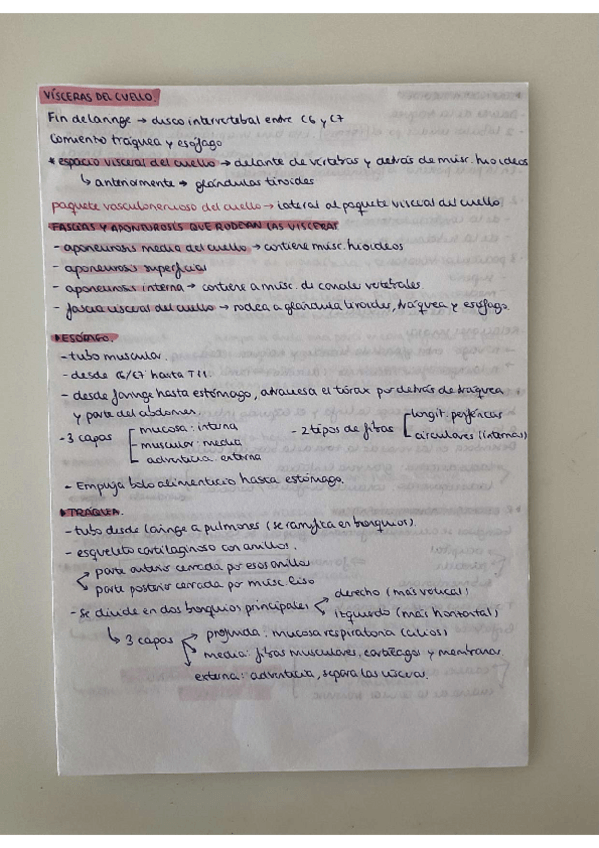 VÍSCERAS DEL CUELLO.
Fin de laringe → disco intervertebral entre C6 y C7
Comiento tráquea y esófago
* espacio visceral del cuello → delante de vertebras y detrás de músc. hioideos
↳ anteriormente → glándulas tiroides
paquete vasculonervioso del cuello → lateral al paquete visceral del cuello
FASCIAS Y APONEUROSIS QUE RODEAN LAS VISCERAS
- aponeurosis media del cuello → contiene músc. hioideos
- aponeurosis superficial
- aponeurosis interna → contiene a músc. de canales vertebrales.
- fascia visceral del cuello → rodea a glándula tiroides, tráquea y esófago.
ESÓFAGO.
- tubo muscular.
- desde C6/C7 hasta T11.
- desde faringe hasta estómago, atraviesa el tórax por detrás de tráquea
y parte del abdomen.
- 3 capas mucosa: interna - 2 tipos de fibras longit. perfericas
- muscular: media circulares (internas)
adventicia: externa
- Empuja bolo alimenticio hasta estómago.
TRÁQUEA.
- tubo desde laringe a pulmones (se ramifica en bronquios).
- esqueleto cartilaginoso con anillos.
parte anterior cerrada por esos anillos
parte posterior cerrada por músc. liso
- se divide en dos bronquios principales derecho (más vertical)
izquierdo (más horizontal)
↳ 3 capas profunda: mucosa respiratoria (cilios)
media: fibras musculares, cartílagos y membranas.
externa: adventicia, separa las vísceras.